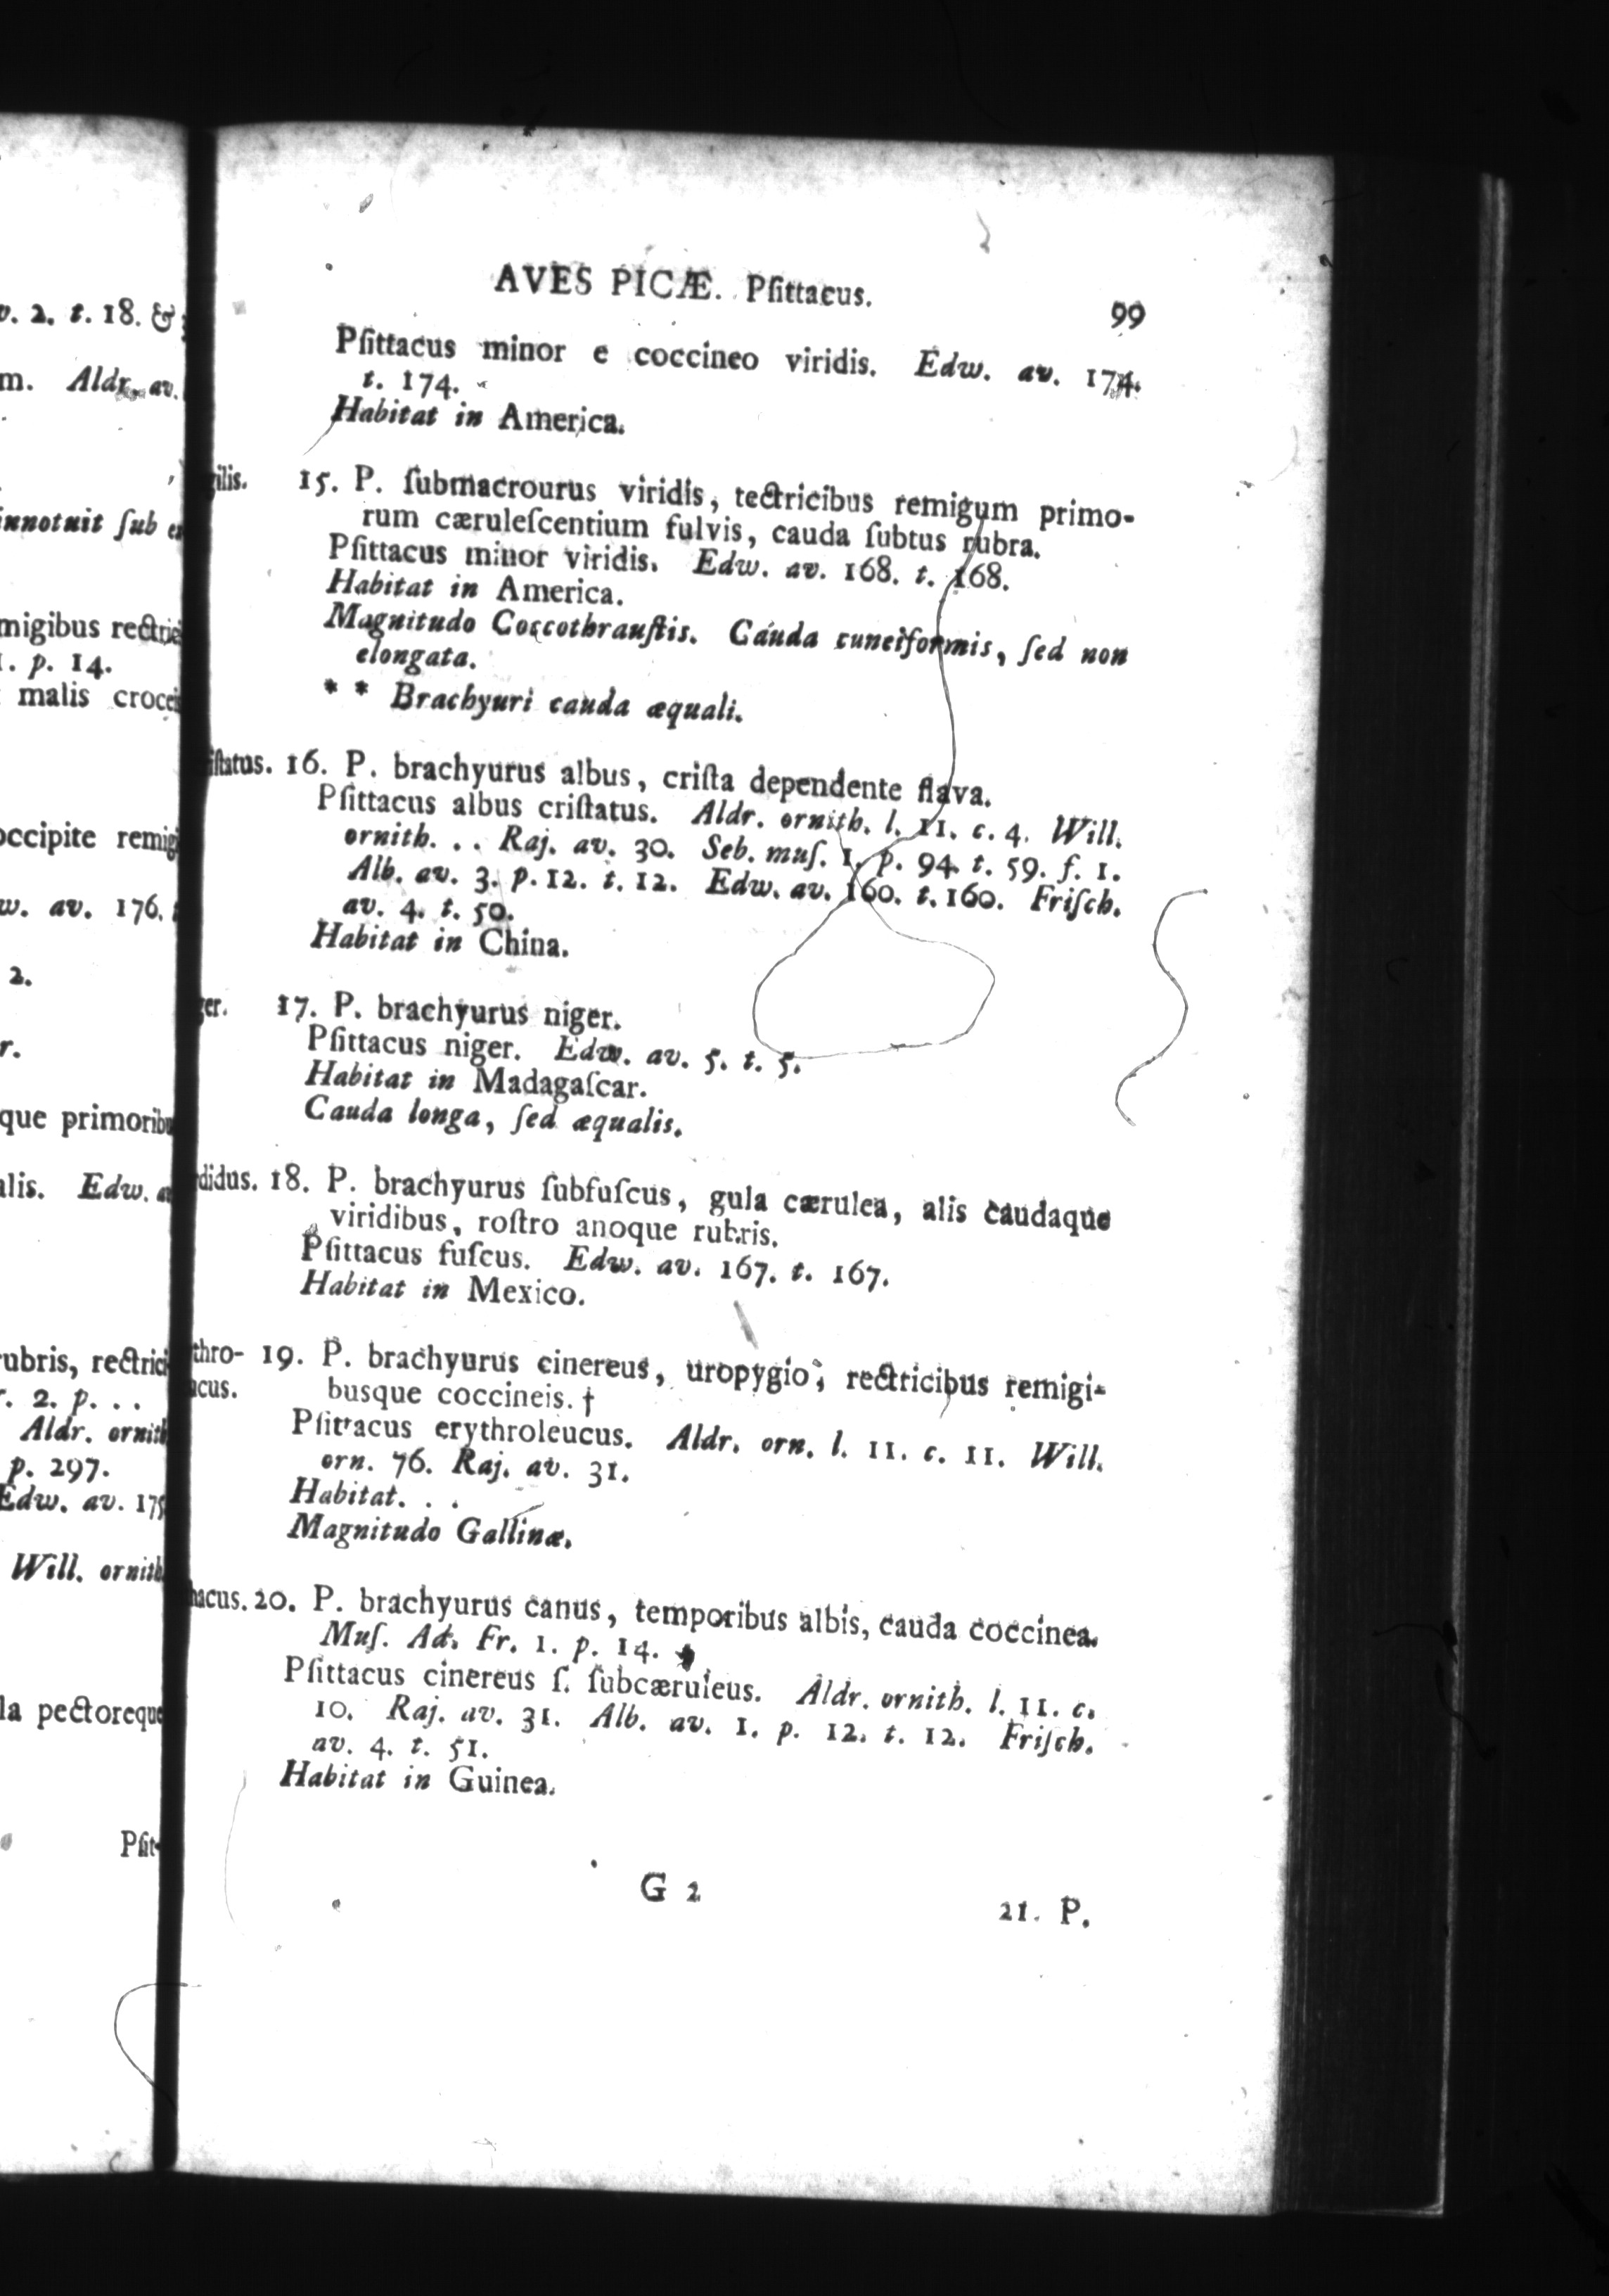 v. 2. t. 18. &
m. Aldr. av.
innotuit ſub
migibus rectri
p. 14.
malis croce
occipite remig
w. av. 176.
2.
r.
que primorib
alis. Edw.
rubris, rectric
r. 2. p. . .
Aldr. ornith
p. 297.
Edw. av. 175
Will. ornith.
la pectoreque
Pſit-
AVES PICÆ. Pſittacus. 99
Pſittacus minor e coccineo viridis. Edw. av. 174.
t. 174.
Habitat in America.
ilis. 15. P. ſubmacrourus viridis, tectricibus remigum primo-
rum cæruleſcentium fulvis, cauda ſubtus rubra.
Pſittacus minor viridis. Edw. av. 168. t. 168.
Habitat in America.
Magnitudo Coccothrauſtis. Cauda cuneiformis, ſed non
elongata.
* * Brachyuri cauda æquali.
iſtatus. 16. P. brachyurus albus, criſta dependente flava.
Pſittacus albus criſtatus. Aldr. ornith. l. 11. c. 4. Will.
ornith. . . Raj. av. 30. Seb. muſ. 1. p. 94. t. 59. f. 1.
Alb. av. 3. p. 12. t. 12. Edw. av. 160. t. 160. Friſch.
av. 4. t. 50.
Habitat in China.
ger. 17. P. brachyurus niger.
Pſittacus niger. Edw. av. 5. t. 5.
Habitat in Madagaſcar.
Cauda longa, ſed æqualis.
didus. 18. P. brachyurus ſubfuſcus, gula cærulea, alis caudaque
viridibus, roſtro anoque rubris.
Pſittacus fuſcus. Edw. av. 167. t. 167.
Habitat in Mexico.
thro- 19. P. brachyurus cinereus, uropygio, rectricibus remigi-
acus. busque coccineis. †
Pſittacus erythroleucus. Aldr. orn. l. 11. c. 11. Will.
orn. 76. Raj. av. 31.
Habitat. . .
Magnitudo Gallinæ.
hacus. 20. P. brachyurus canus, temporibus albis, cauda coccinea.
Muſ. Ad. Fr. 1. p. 14.
Pſittacus cinereus ſ. ſubcæruleus. Aldr. ornith. l. 11. c.
10. Raj. av. 31. Alb. av. 1. p. 12. t. 12. Friſch.
av. 4. t. 51.
Habitat in Guinea.
G 2
21. P.